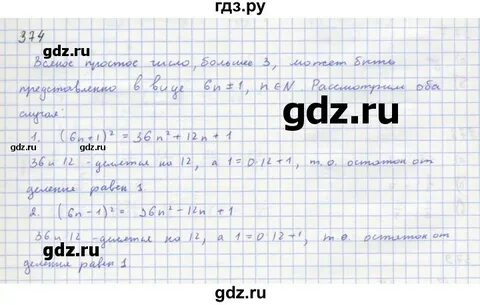 гдз.ру
374
Всякое простое число, большее 3, может быть
представленно в виде 6n ± 1, n ∈ N. Рассмотрим оба
случая:
1. (6n+1)² = 36n² + 12n + 1
36 и 12 - делятся на 12, а 1 = 0·12+1, т.о. остаток от
деления равен 1
2. (6n-1)² = 36n² - 12n + 1
36 и 12 - делятся на 12, а 1 = 0·12+1, т.о. остаток от
деления равен 1
гдз.ру